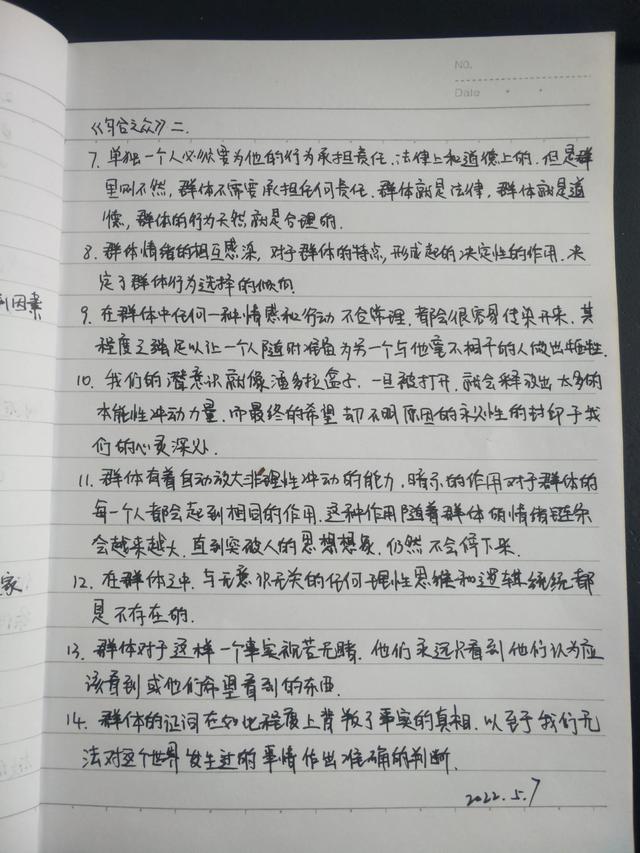 No.
Date
《乌合之众》二.
7. 单独一个人必须要为他的行为承担责任、法律上和道德上的. 但是群
里则不然, 群体不需要承担任何责任. 群体就是法律, 群体就是道
德, 群体的行为天然就是合理的.
8. 群体情绪的相互感染, 对于群体的特点, 形成起的决定性的作用. 决
定了群体行为选择的倾向
到因素
9. 在群体中任何一种情感和行动 不合常理. 都会很容易传染开来. 其
程度之强足以让一个人随时准备为另一个与他毫不相干的人做出牺牲.
10. 我们的潜意识就像潘多拉盒子. 一旦被打开. 就会释放出太多的
本能性冲动力量. 而最终的希望却不明原因的永久性的封印于我
们的心灵深处.
11. 群体有着自动放大非理性冲动的能力, 暗示的作用对于群体的
每一个人都会起到相同的作用. 这种作用随着群体的情绪链条
会越来越大. 直到突破人的思想想象, 仍然不会停下来.
家
12. 在群体之中. 与无意识无关的任何理性思维和逻辑统统都
是不存在的.
13. 群体对于这样一个事实视若无睹. 他们永远只看到他们认为应
该看到或他们希望看到的东西.
14. 群体的证词在如此程度上背叛了事实的真相. 以至于我们无
法对这个世界发生过的事情作出准确的判断.
2022.5.7